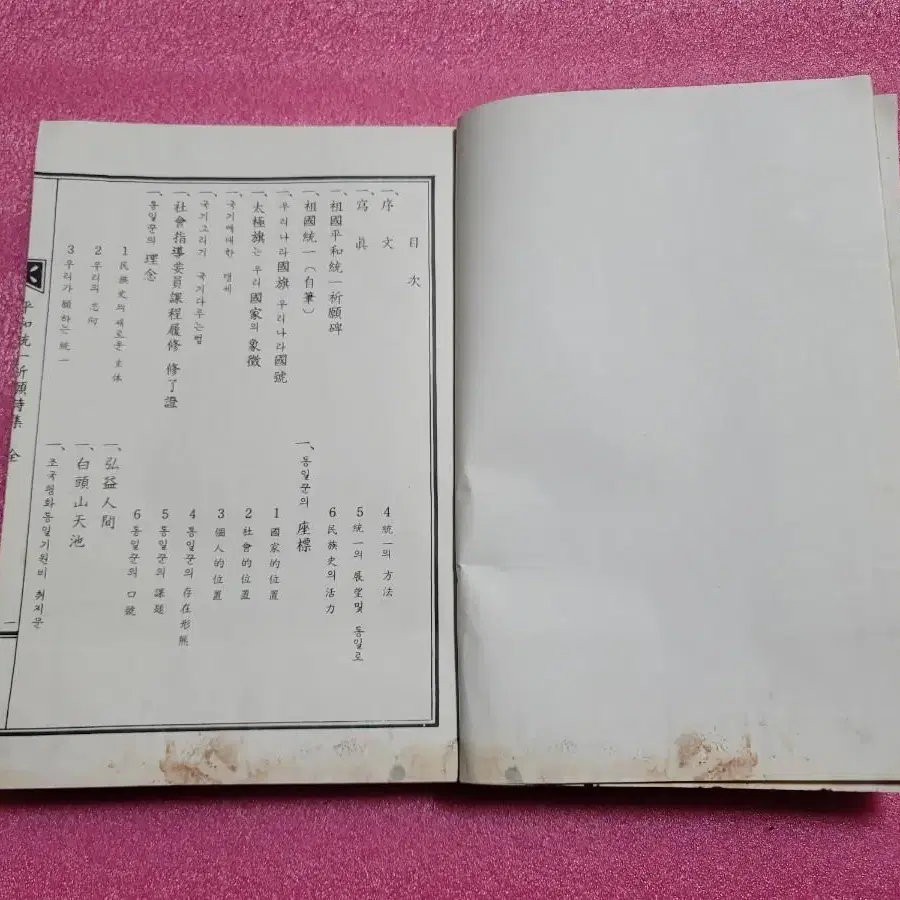 目次
一、序文
一、寫眞
一、祖國平和統一祈願碑
一、祖國統一(自筆)
一、우리나라國旗 우리나라國號
一、太極旗는 우리國家의 象徵
一、국기에대한 맹세
一、국기그리기 국기다루는법
一、社會指導要員課程履修 修了證
一、통일꾼의 理念
1 民族史의 새로운 主体
2 우리의 志向
3 우리가 願하는 統一
4 統一의 方法
5 統一의 展望및 통일로
6 民族史의 活力
一、통일꾼의 座標
1 國家的位置
2 社會的位置
3 個人的位置
4 통일꾼의 存在形態
5 통일꾼의 課題
6 통일꾼의 口號
一、弘益人間
一、白頭山天池
一、조국평화통일기원비 취지문
平和統一祈願詩集 全
一